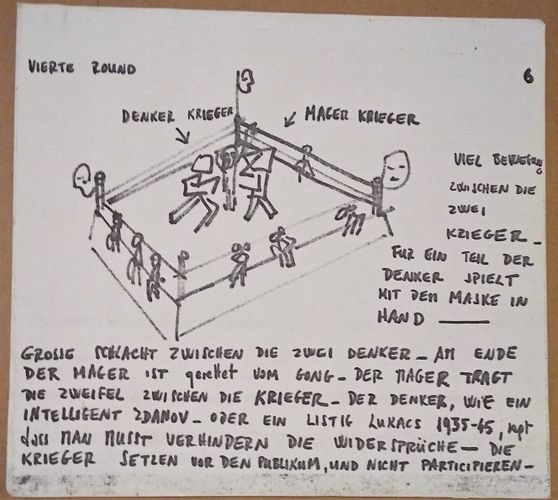 VIERTE ROUND
6
DENKER KRIEGER
MAGER KRIEGER
VIEL BEWEGUNG
ZWISCHEN DIE
ZWEI
KRIEGER_
FUR EIN TEIL DER
DENKER SPIELT
MIT DEM MASKE IN
HAND ——
GROSSE SCHLACHT ZWISCHEN DIE ZWEI DENKER_ AM ENDE
DER MAGER IST gerettet VOM GONG_ DER MAGER TRAGT
DIE ZWEIFEL ZWISCHEN DIE KRIEGER_ DER DENKER, WIE EIN
INTELLIGENT ZDANOV_ ODER EIN LISTIG LUKACS 1935-45, sagt
dass MAN MUSST VERHINDERN DIE WIDERSPRÜCHE_ DIE
KRIEGER SETZEN VOR DEN PUBLIKUM, UND NICHT PARTICIPEREN_